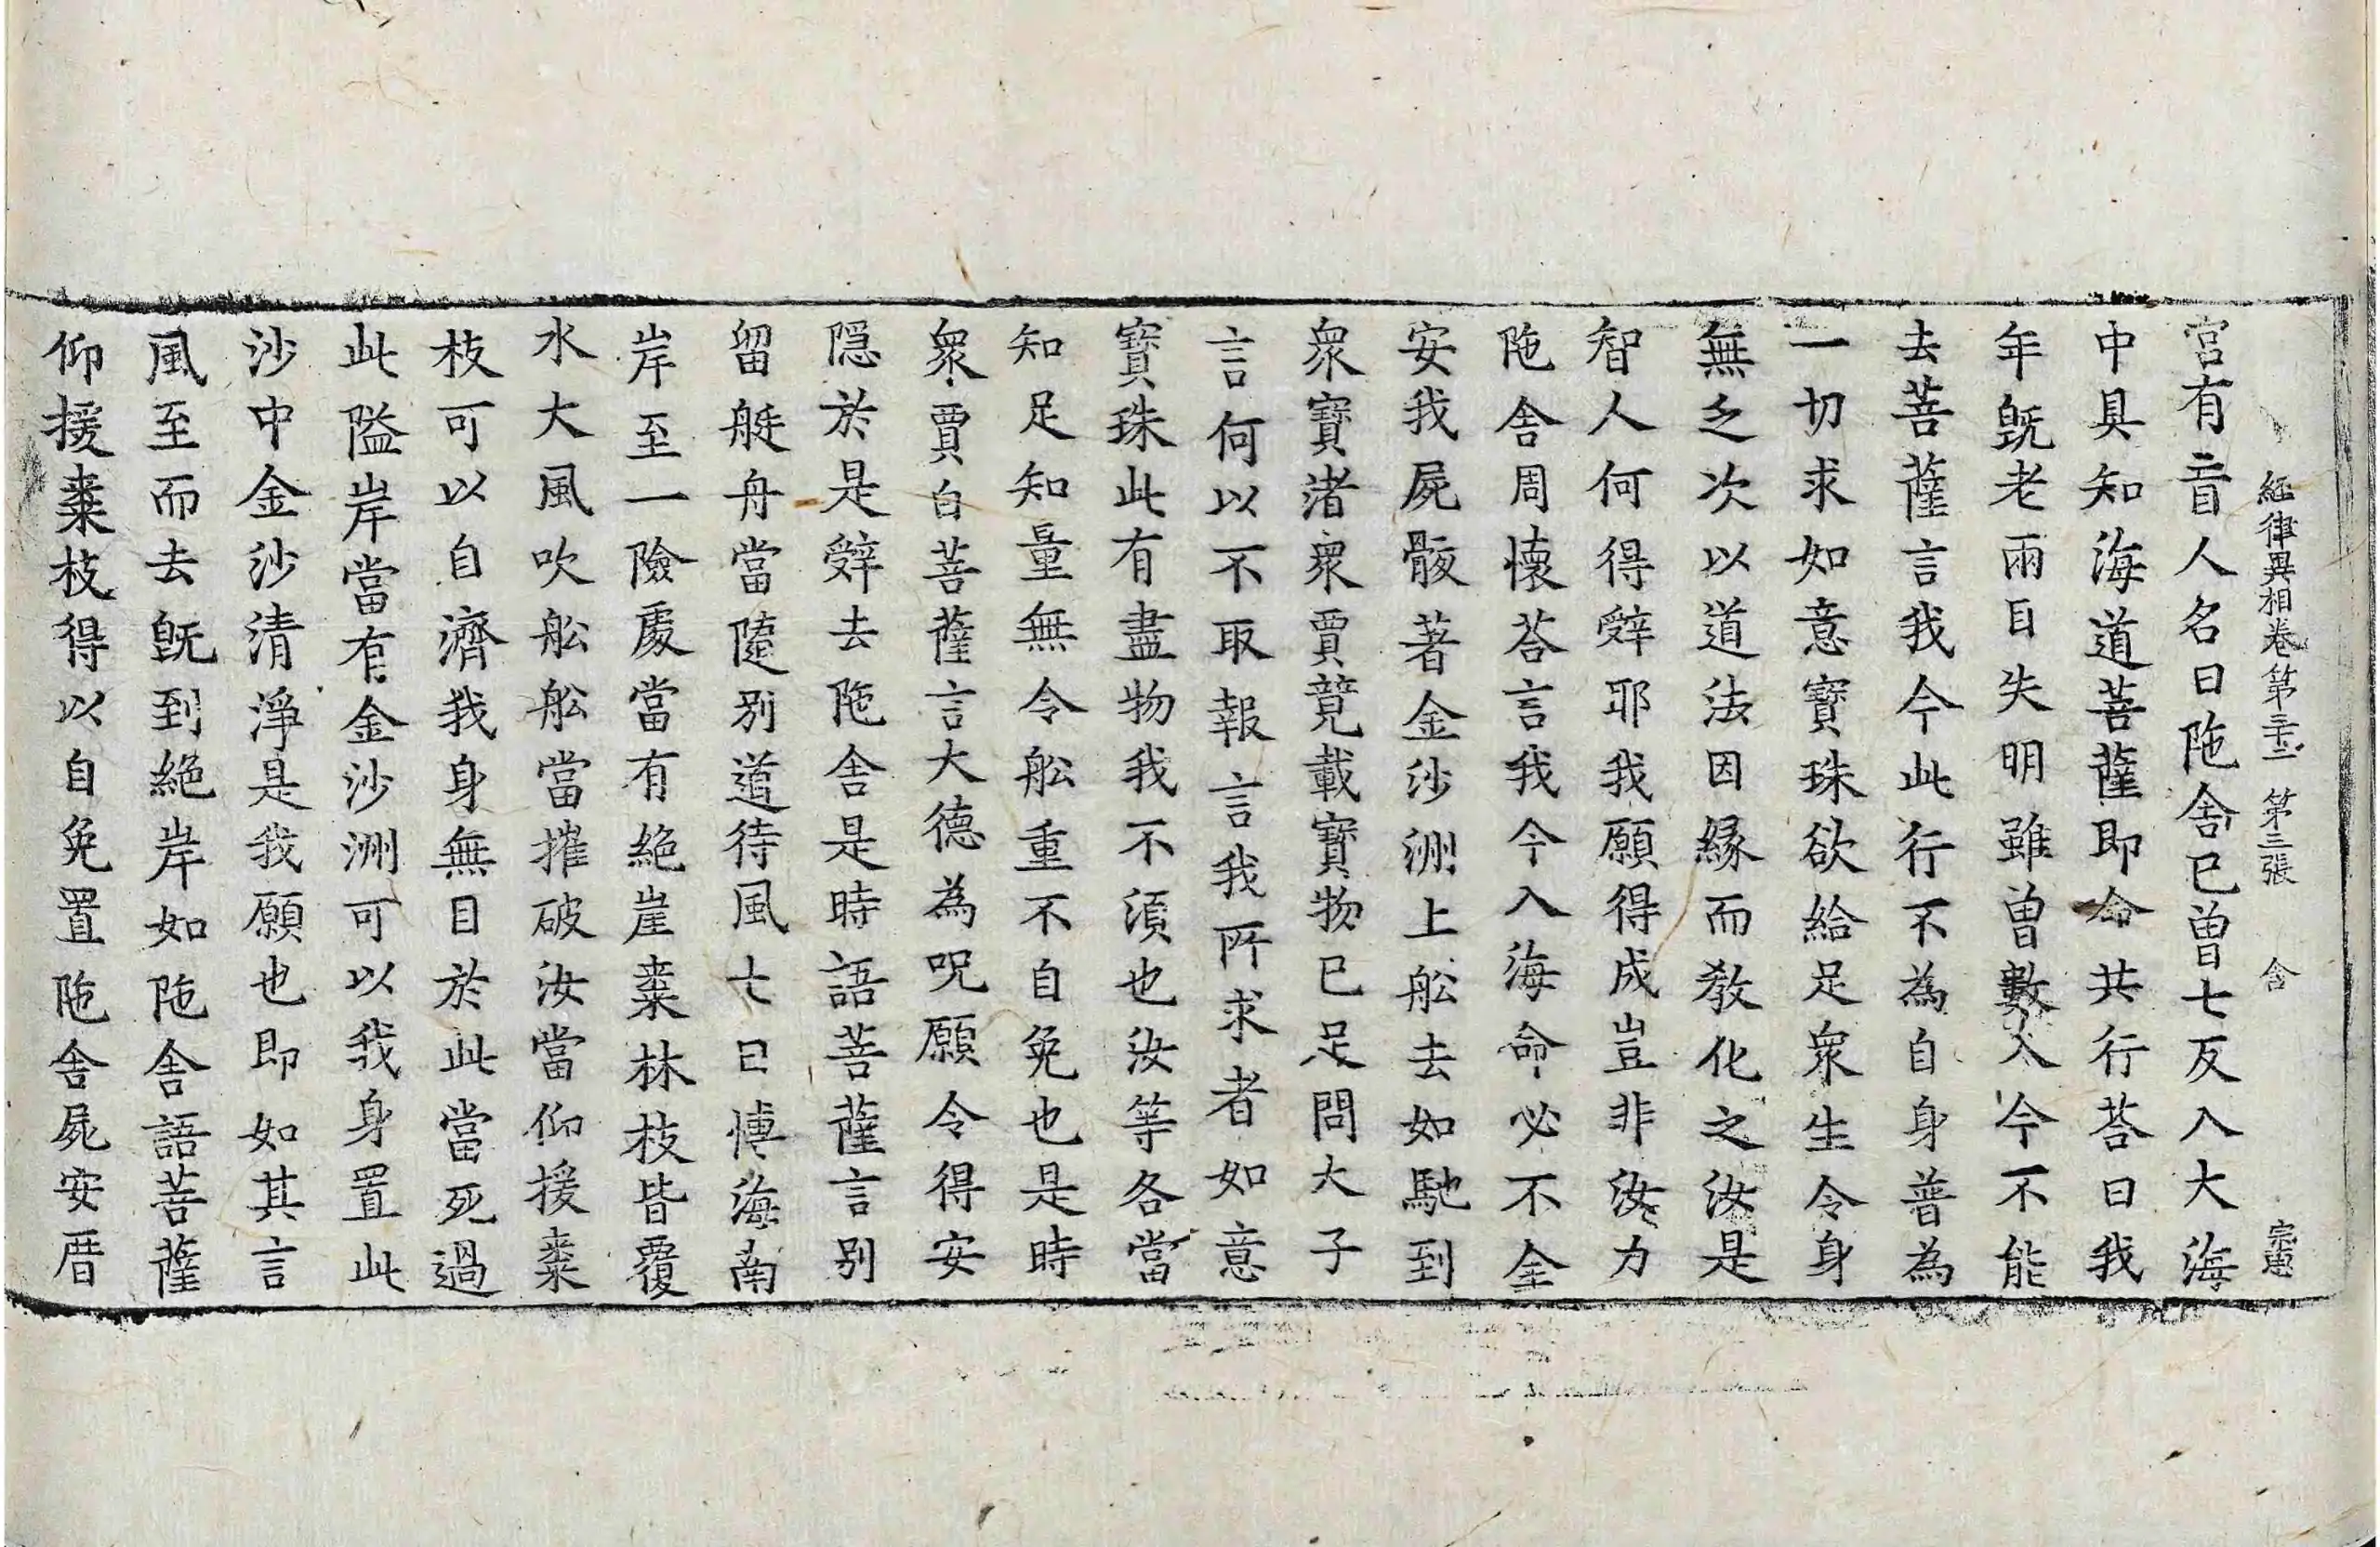 經律異相卷第三十二 第三張 含 宗憲
宮有盲人名曰陁舍已曾七反入大海
中具知海道菩薩即命共行荅曰我
年旣老兩目失明雖曾數入今不能
去菩薩言我今此行不為自身普為
一切求如意寶珠欲給足衆生令身
無乏次以道法因緣而教化之汝是
智人何得辤耶我願得成豈非汝力
陁舍周懷荅言我今入海命必不全
安我屍骸著金沙洲上舩去如馳到
衆寶渚衆賈競載寶物已足問大子
言何以不取報言我所求者如意
寶珠此有盡物我不湏也汝等各當
知足知量無令舩重不自免也是時
衆賈白菩薩言大德為呪願令得安
隠於是辤去陁舍是時語菩薩言别
留艇舟當隨别道待風七日愽海南
岸至一險處當有絶崖棗林枝皆覆
水大風吹舩舩當摧破汝當仰援棗
枝可以自濟我身無目於此當死過
此隘岸當有金沙洲可以我身置此
沙中金沙清淨是我願也即如其言
風至而去旣到絶岸如陁舍語菩薩
仰援棗枝得以自免置陁舍屍安厝